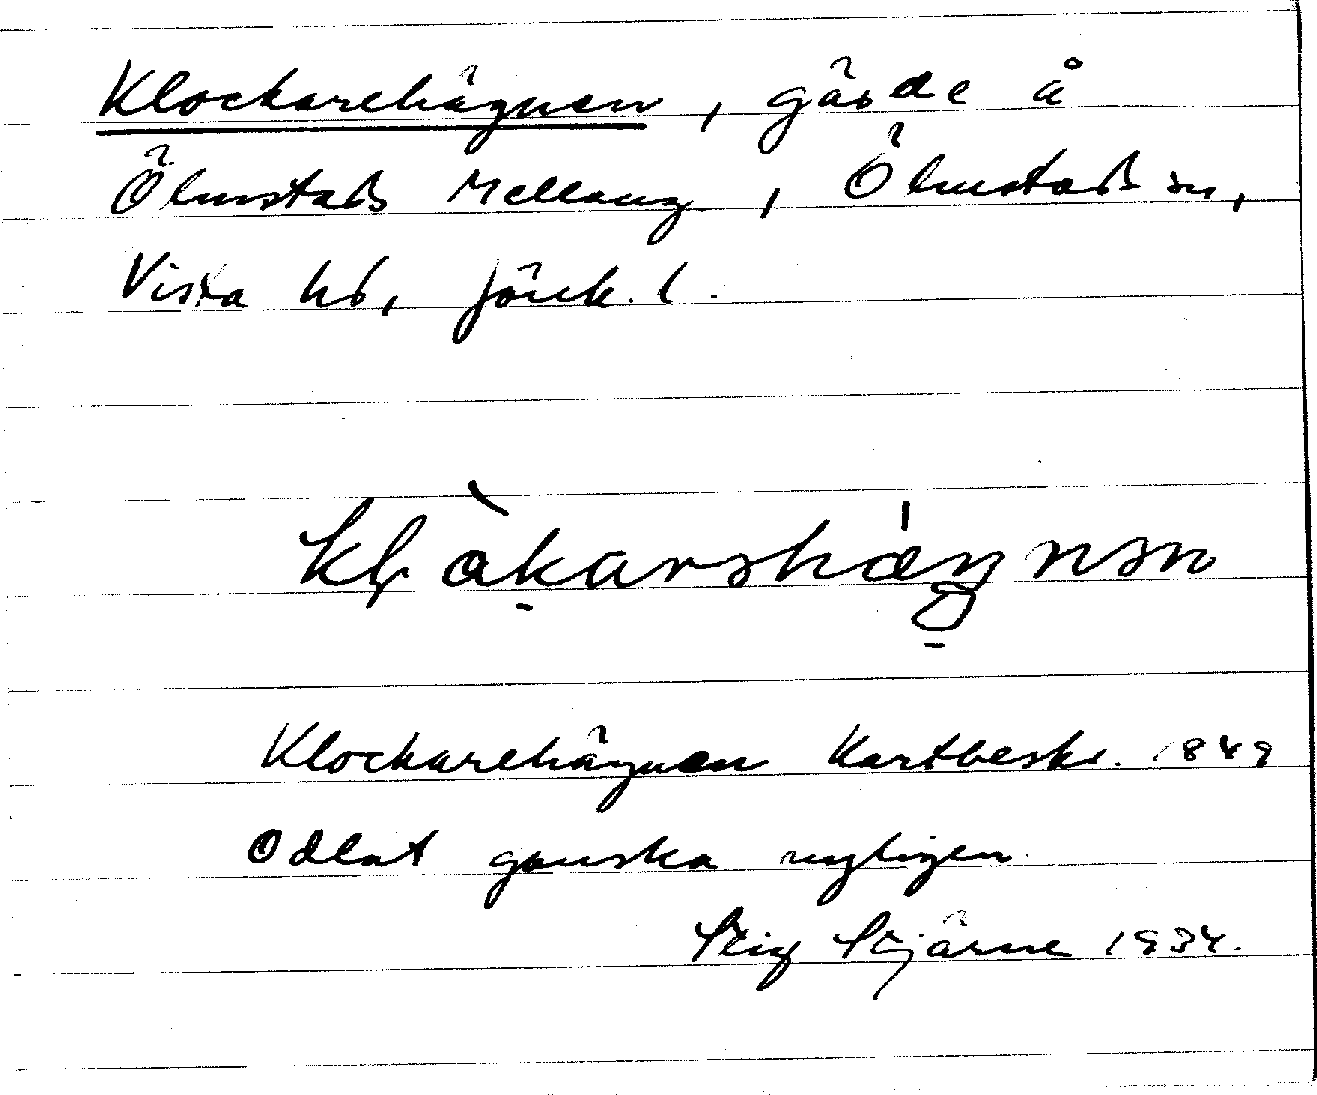 Klockarehägnen, gärde å
Ölmstads Mellang, Ölmstads sn,
Vista hd, Jönk. l.
klàkarəhá̈gnən
Klockarehägnen Kartbeskr. 1849
Odlat ganska nyligen
Stig Stjärne 1934.